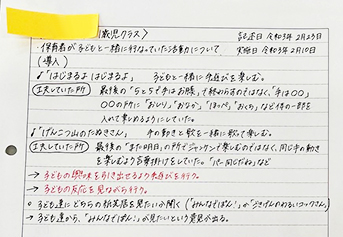 歳児クラス〉 記述日 令和3年2月23日
・保育者が子どもと一緒に行なっていた活動について 実施日 令和3年2月10日
(導入)
♪「はじまるよ はじまるよ」 子どもと一緒に手遊びを楽しむ。
工夫していた所 最後の"5と5で手はお膝"で終わらすのではなく、"手は○○"
○○の所に"おしり""おなか""ほっぺ""おくち"など体の一部を
入れて楽しめるようにしていた。
♪「げんこつ山のたぬきさん」 手の動きと歌を一緒に歌って楽しむ。
工夫していた所 最後の"また明日"の所でジャンケンで楽しむのではなく、同じ手の動き
を楽しむような声掛けをしていた。"パー同じだね"など
→ 子どもの興味を引き出せるよう手遊びを行う。
→ 子どもの反応を見ながら行う。
○ 子ども達にどちらの紙芝居を見たいか聞く(「みんなでぽん!」か
→ 子ども達から、「みんなでぽん!」が見たいという意見が出る。